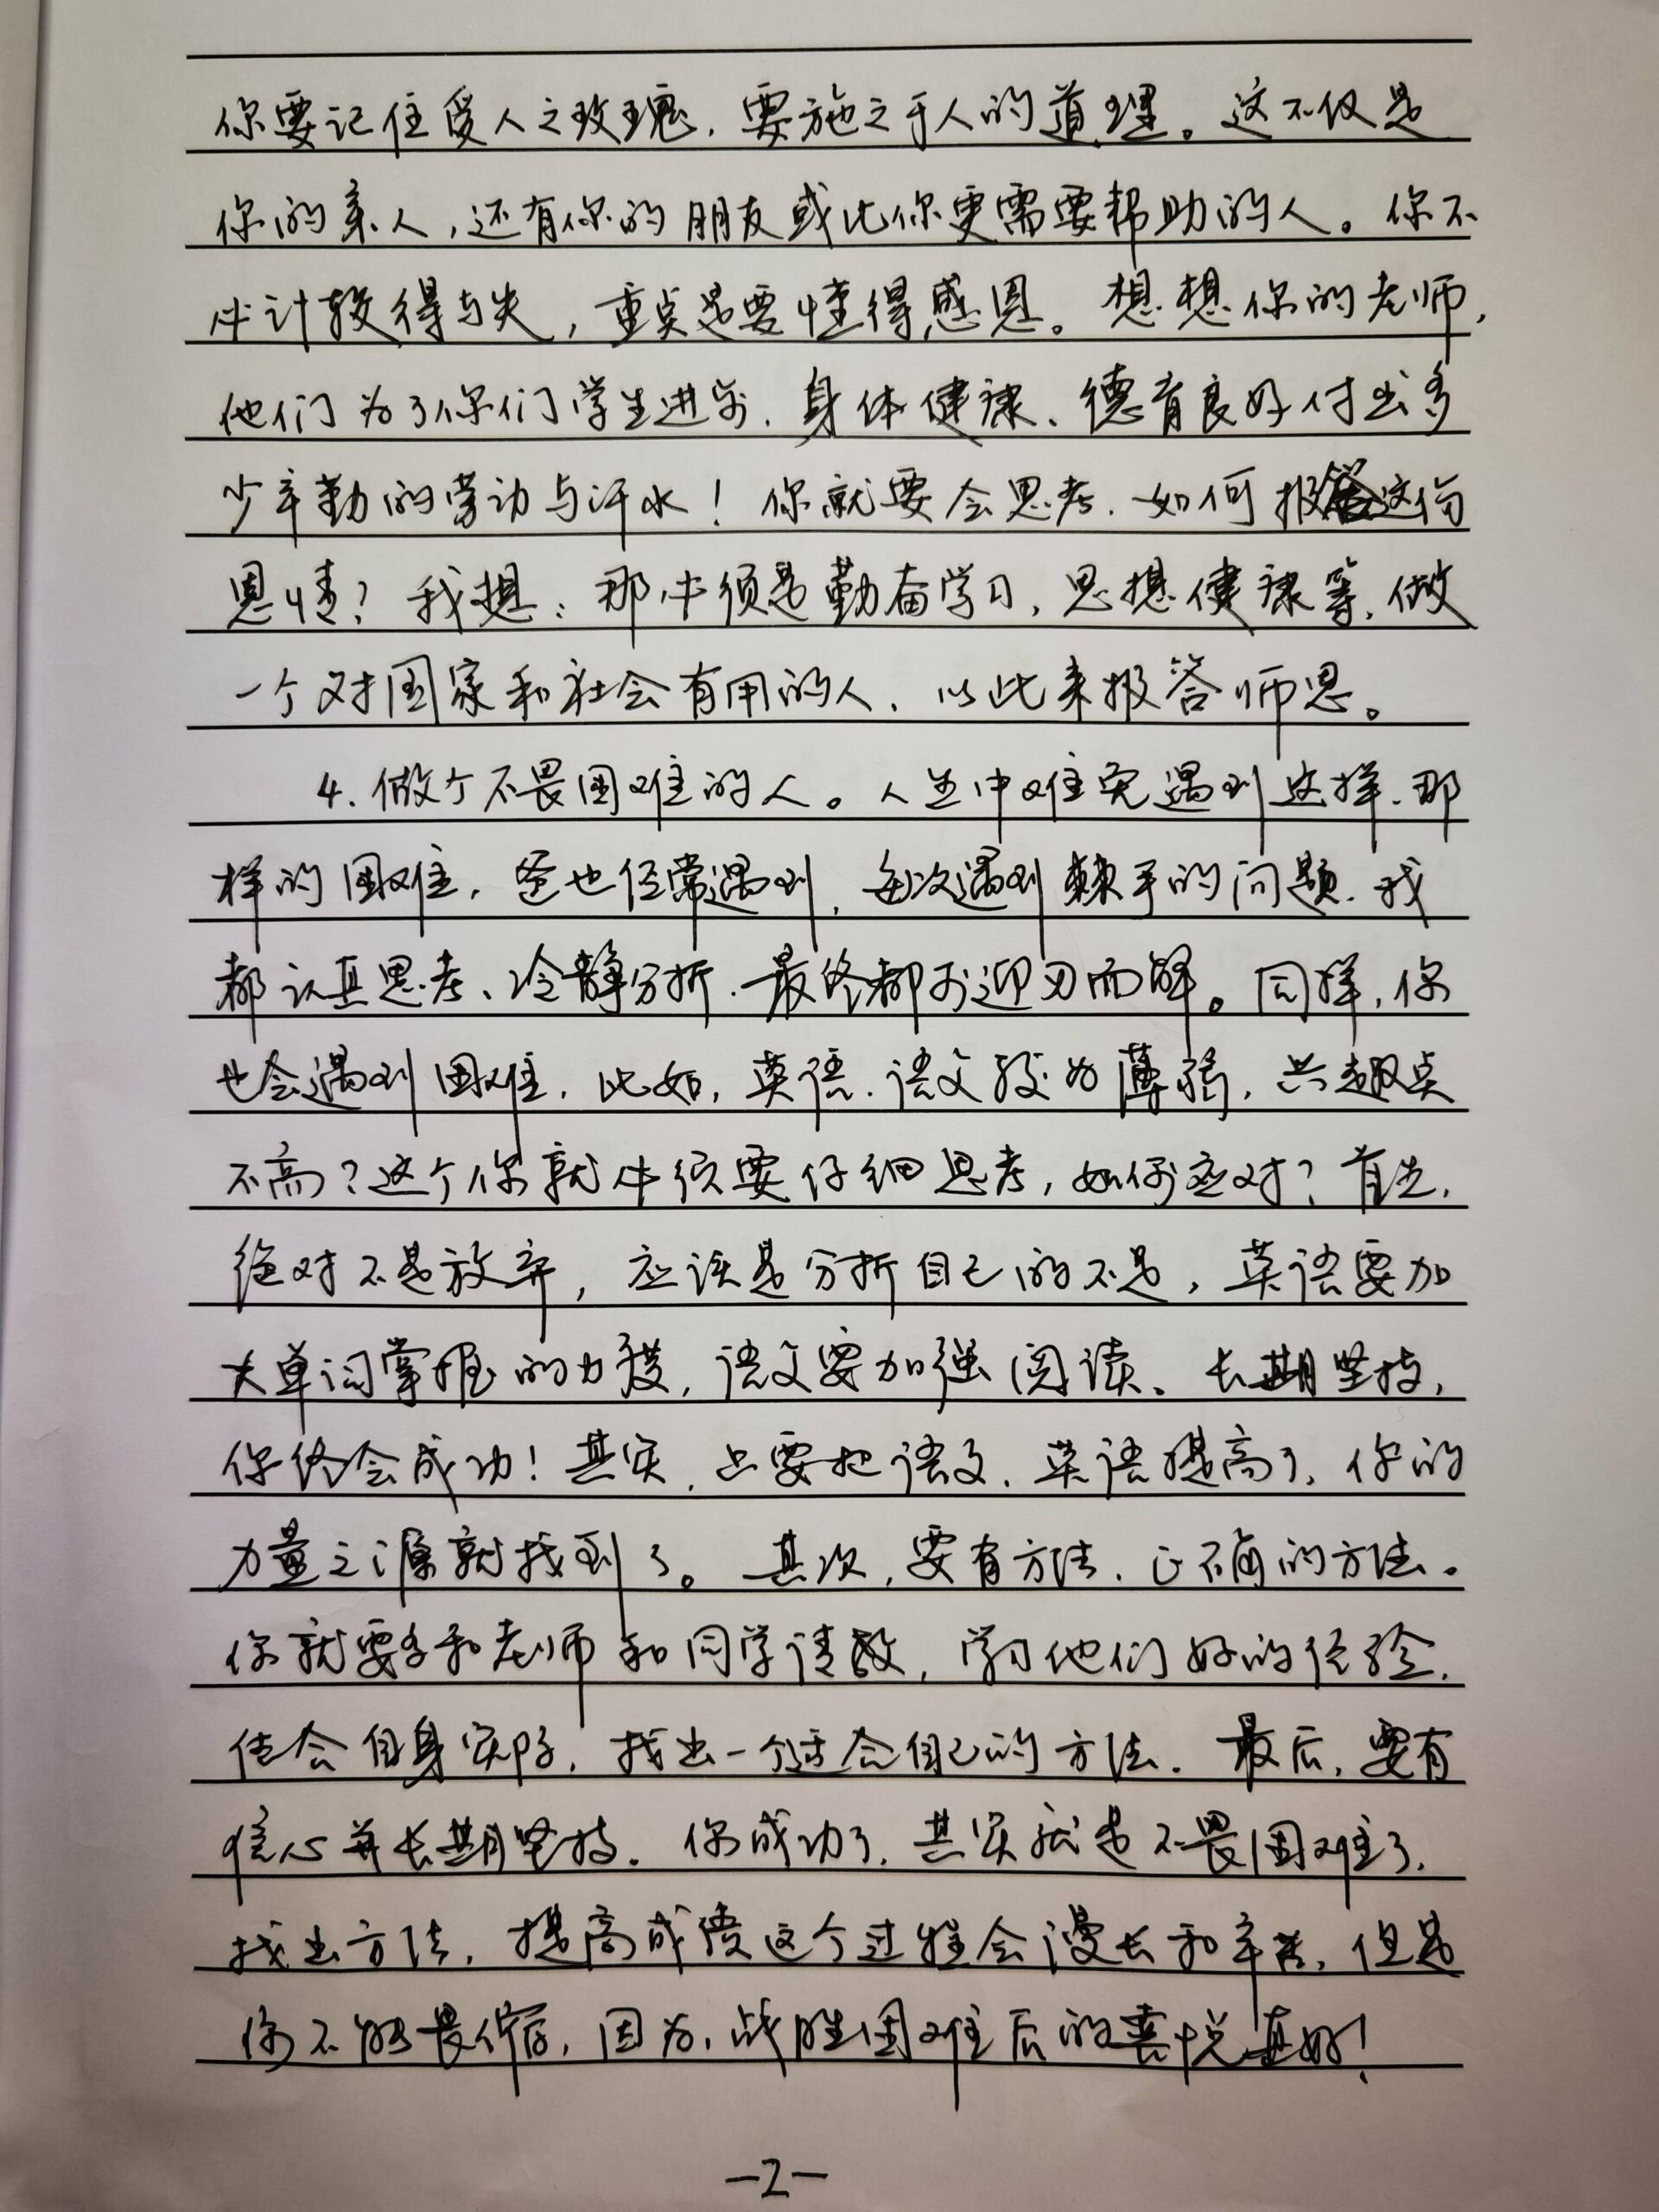 你要记住受人之玫瑰，要施之于人的道理。这不仅是
你的亲人，还有你的朋友或比你更需要帮助的人。你不
必计较得与失，重点是要懂得感恩。想想你的老师，
他们为了你们学生进步、身体健康、德育良好付出多
少辛勤的劳动与汗水！你就要会思考，如何报答这份
恩情？我想：那必须是勤奋学习，思想健康等，做
一个对国家和社会有用的人，以此来报答师恩。
4.做个不畏困难的人。人生中难免遇到这样、那
样的困难，爸也经常遇到，每次遇到棘手的问题，我
都认真思考、冷静分析，最终都可迎刃而解。同样，你
也会遇到困难，比如，英语、语文较为薄弱，兴趣点
不高？这个你就必须要仔细思考，如何应对？首先，
绝对不是放弃，应该是分析自己的不足，英语要加
大单词掌握的力度，语文要加强阅读、长期坚持，
你终会成功！其实，只要把语文、英语提高了，你的
力量之源就找到了。其次，要有方法、正确的方法。
你就要多和老师和同学请教，学习他们好的经验，
结合自身实际，找出一个适合自己的方法。最后，要有
信心并长期坚持。你成功了，其实就是不畏困难了，
找出方法，提高成绩这个过程会漫长和辛苦，但是
你不能畏惧，因为，战胜困难后的喜悦真好！
—2—